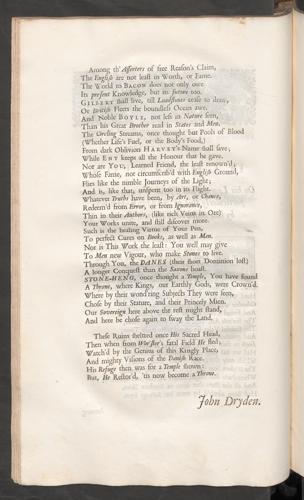 Among th' Asserters of free Reason's Claim,
The English are not least in Worth, or Fame.
The World to BACON does not only owe
Its present Knowledge, but its future too.
GILBERT shall live, till Loadstones cease to draw,
Or British Fleets the boundless Ocean awe.
And Noble BOYLE, not less in Nature seen,
Than his Great Brother read in States and Men.
The Circling Streams, once thought but Pools of Blood
(Whether Life's Fuel, or the Body's Food,)
From dark Oblivion HARVEY's Name shall save;
While ENT keeps all the Honour that he gave.
Nor are YOU, Learned Friend, the least renown'd;
Whose Fame, not circumscrib'd with English Ground,
Flies like the nimble Journeys of the Light;
And is, like that, unspent too in its Flight.
Whatever Truths have been, by Art, or Chance,
Redeem'd from Error, or from Ignorance,
Thin in their Authors, (like rich Veins in Ore)
Your Works unite, and still discover more.
Such is the healing Virtue of Your Pen,
To perfect Cures on Books, as well as Men.
Nor is This Work the least: You well may give
To Men new Vigour, who make Stones to live.
Through You, the DANES (their short Dominion lost)
A longer Conquest than the Saxons boast.
STONE-HENG, once thought a Temple, You have found
A Throne, where Kings, our Earthly Gods, were Crown'd.
Where by their wondring Subjects They were seen,
Chose by their Stature, and their Princely Mien.
Our Sovereign here above the rest might stand,
And here be chose again to sway the Land.
These Ruins sheltred once His Sacred Head,
Then when from Wor'ster's fatal Field He fled;
Watch'd by the Genius of this Kingly Place,
And mighty Visions of the Danish Race.
His Refuge then was for a Temple shown:
But, He Restor'd, 'tis now become a Throne.
John Dryden.